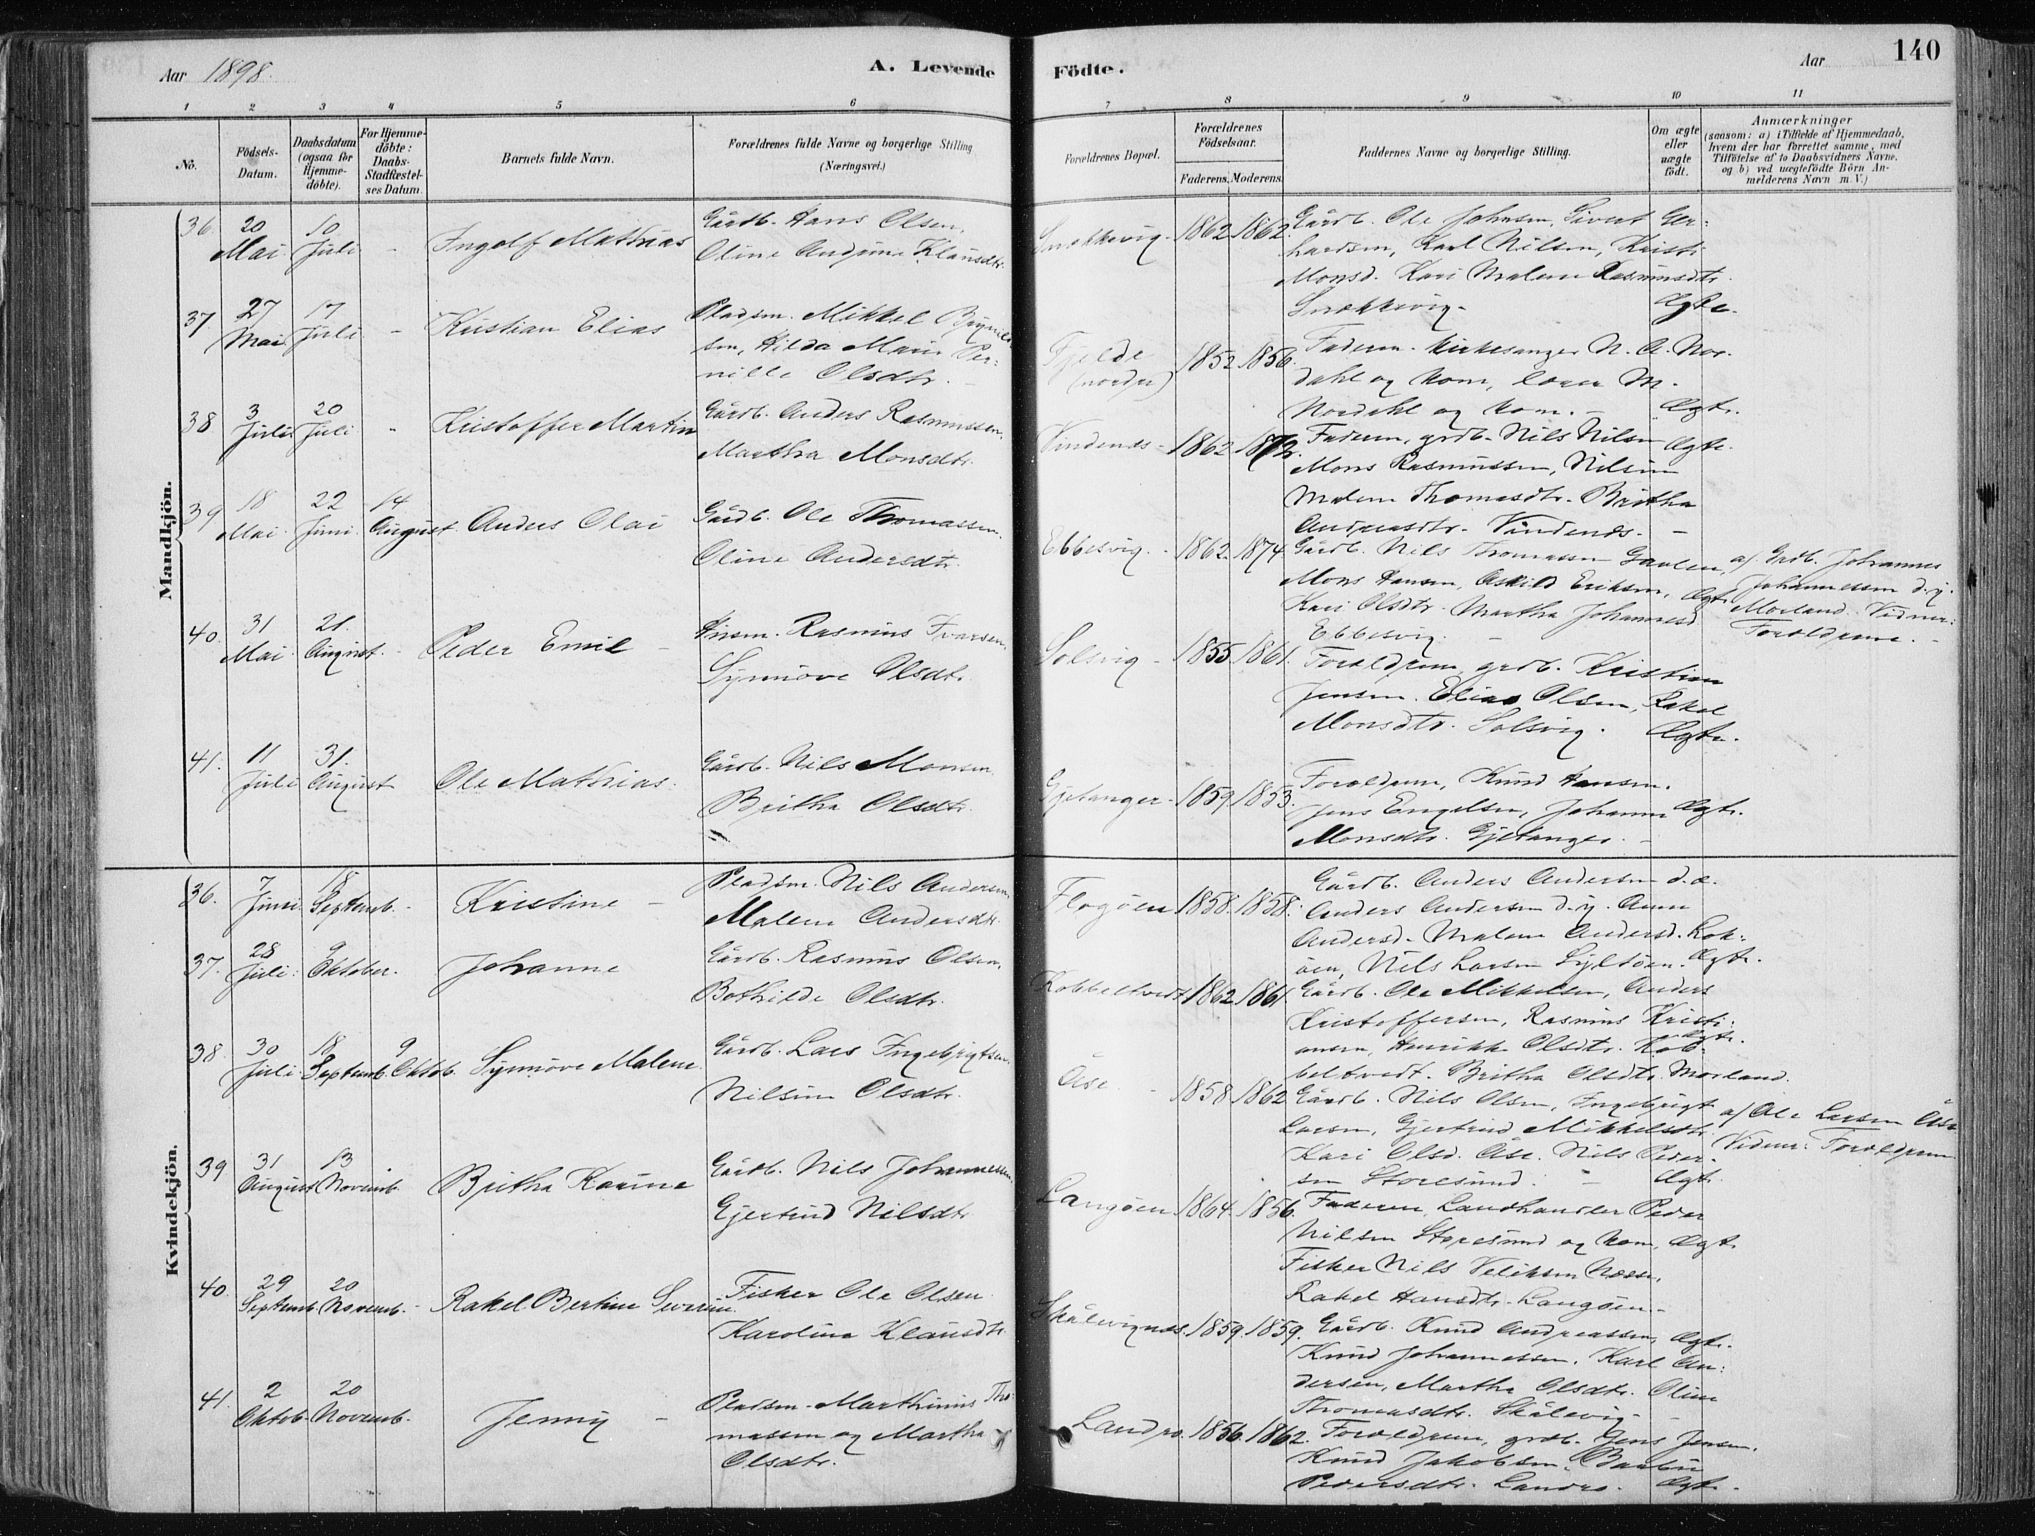 Aar 1898.
A. Levende
Födte.
Aar
140
1 2 3 4 5 6 7 8 9 10 11
No.
Födsels-
Datum.
Daabsdatum
(ogsaa for
Hjemme-
döbte).
For Hjemme-
döbte:
Daabs-
Stadfæstel-
ses Datum.
Barnets fulde Navn.
Forældrenes fulde Navne og borgerlige Stilling
(Næringsvei.)
Forældrenes Bopæl.
Forældrenes
Födselsaar.
Faderens. Moderens.
Faddernes Navne og borgerlige Stilling.
Om ægte
eller
uægte
födt.
Anmærkninger
(saasom: a) i Tilfælde af Hjemmedaab,
hvem der har forrettet samme, med
Tilföielse af to Daabsvidners Navne,
og b) ved uægtefödte Börn An-
melderens Navn m. V.)
Mandkjön.
36. 20 Mai 10 Juli - Ingolf Mathias
Gårdb. Hans Olsen,
Oline Klausdtr.
Snekkevig - 1862 1862.
Gårdb. Ole Johnsen, Sivert Ger-
hardsen, Karl Nilsen, Kristi
Monsd. Kari Malene Rasmusdtr.
Snekkevig - Ægte.
37 27 Mai 17 Juli - Kristian Elias
Pladsm. Mikkel
sen, Hilda Marie Per-
nille Olsdtr. -
Fjelde
(nordre) 1852 1856.
Faderen. Kirkesanger N. A. Nor-
dahl og Kone, lærer M.
Nordahl og Kone. - Ægte.
38 3 Juli 20 Juli - Kristoffer Martin
Gårdb. Anders Rasmussen,
Martha Monsdtr.
Vindenes - 1862 1872.
Faderen, grdb. Nils Nilsen Ægte.
Mons Rasmussen, Nilsine
Malene Thomasdtr. Britha
Andreasdtr. Vindenes. -
39 18 Mai. 22 Juni 14 August Anders Olai
Gårdb. Ole Thomassen.
Oline Andersdtr.
Ebbesvig. - 1862. 1874.
Gårdb. Nils Thomassen
Mons Hansen, Askild Eriksen, Ægte.
Kari Olsdtr. Martha Johannesd
Ebbesvig. -
a/ Grdb. Johannes
Johannessen d.y.
Morland. Vidner:
Forældrene. -
40. 31 Mai. 21. August. - Peder Emil -
Husm. Rasmus Ivarsen,
Synnöve Olsdtr.
Solsvig - 1855 1861.
Forældrene, grdb. Kristian
Jensen. Elias Olsen, Rakel
Monsdtr. Solsvig. Ægte.
41. 11 Juli 31. August Ole Mathias.
Gårdb. Nils Monsen
Britha Olsdtr.
Gjetanger - 1859 1853.
Forældrene, Knud Hansen.
Jens Engelsen, Johanne Ægte.
Monsdtr. Gjetanger. -
Kvindekjön.
36. 7 Juni. 18 Septemb. - Kristine -
Pladsm. Nils Andersen
Malene Andersdtr.
Flogöen 1858. 1858.
Gårdb. Anders Andersen d.æ.
Anders Andersen d.y. Anna
Andersd. Malene Andersd. Lok-
öen, Nils Larsen Syltöen. Ægte.
37. 28 Juli. 9 Oktober. Johanne
Gårdb. Rasmus Olsen,
Bothilde Olsdtr.
Kobbeltvedt 1862 1861.
Gårdb. Ole Mikkelsen, Anders
Kristoffersen, Rasmus Kristi-
ansen, Henrikke Olsdtr. Kob- Ægte.
beltvedt. Britha Olsdtr. Morland.
38. 30 Juli 18 Septemb. 9 Oktob. Synnöve Malene
Gårdb. Lars Ingebrigtsen,
Nilsine Olsdtr.
Åse. - 1858. 1862
Gårdb. Nils Olsen, Ingebrigt
Larsen, Gjertrud Mikkelsdtr
Kari Olsd. Åse. Nils Peder-
sen Storesund. - Ægte.
a/ Ole Larsen Åse
Vidner: Forældrene
39 31 August 13 Novemb. Britha Karine
Gårdb. Nils Johannessen,
Gjertrud Nilsdtr.
Langöen 1864. 1856.
Faderen, Landhandler Peder
Nilsen Storesund og Kone, Ægte.
Fisker Nils Næsse,
Rakel Hansdtr. Langöen. -
40. 29 Septemb. 20 Novemb. - Rakel Bertine Severine.
Fisker Ole Olsen
Karoline Klausdtr.
Skålvignes 1859. 1859.
Gårdb. Knud Andreassen, Ægte.
Knud Johannessen, Karl An-
dersen, Martha Olsdtr. Oline
Thomasdtr. Skålevig -
41. 2 Oktob. 20 Novemb. Jenny -
Pladsm. Marthinus Tho-
massen og Martha
Olsdtr.
Landro. 1856. 1862.
Forældrene, grdb. Jens Jensen.
Knud Jakobsen,
Pedersdtr. Landro. Ægte.